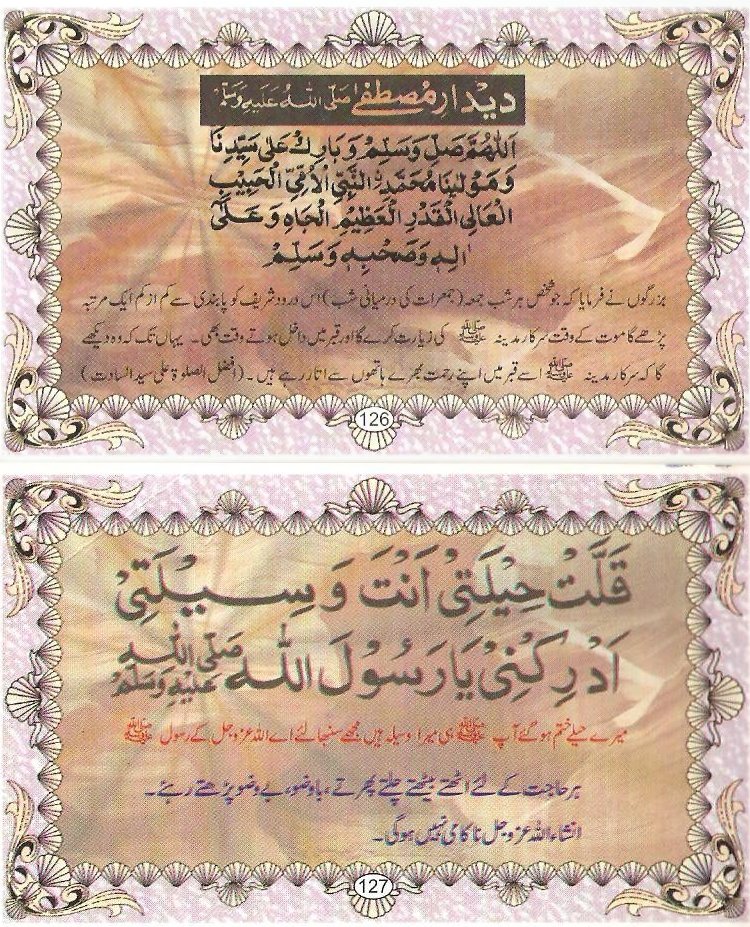 دیدارِ مُصطفیٰ صَلَّی اللہُ عَلَیْہِ وَسَلَّمْ
اَللّٰهُمَّ صَلِّ وَسَلِّمْ وَبَارِكْ عَلٰی سَيِّدِنَا
وَمَوْلٰينَا مُحَمَّدِ ۣالنَّبِيِّ الْاُمِّيِّ الْحَبِيْبِ
الْعَالِی الْقَدْرِ الْعَظِيْمِ الْجَاهِ وَعَلٰٓی
اٰلِهٖ وَصَحْبِهٖ وَسَلِّمْ
بزرگوں نے فرمایا کہ جو شخص ہر شب جمعہ (جمعرات کی درمیانی شب) اس درود شریف کو پابندی سے کم از کم ایک مرتبہ
پڑھے گا موت کے وقت سرکار مدینہ ﷺ کی زیارت کرے گا اور قبر میں داخل ہوتے وقت بھی۔ یہاں تک کہ وہ دیکھے
گا کہ سرکار مدینہ ﷺ اسے قبر میں اپنے رحمت بھرے ہاتھوں سے اتار رہے ہیں۔ (افضل الصلوة علی سید السادت)
126
قَلَّتْ حِيْلَتِیْ اَنْتَ وَسِيْلَتِیْ
اَدْرِكْنِیْ يَا رَسُوْلَ اللّٰه صَلَّی اللّٰهِ عَلَيْهِ وَسَلَّمْ
میرے حیلے ختم ہو گئے آپ ﷺ ہی میرا وسیلہ ہیں مجھے سنبھالئے اے اللہ عزوجل کے رسول ﷺ
ہر حاجت کے لئے اٹھتے بیٹھتے چلتے پھرتے، باوضو، بے وضو پڑھتے رہئے۔
انشاء اللہ عزوجل ناکامی نہیں ہوگی۔
127